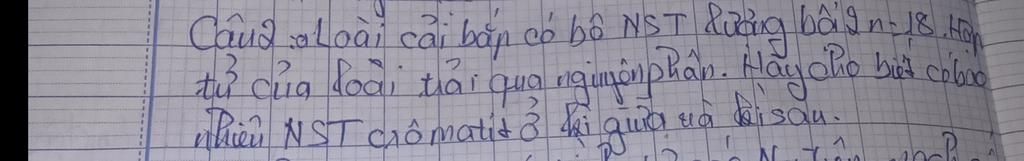 Câu 2: a Loài cải bắp có bộ NST lưỡng bội 2n=18. Hợp
tử của loài trải qua nguyên phân. Hãy cho biết có bao
nhiêu NST crômatit ở kì giữa và kì sau.